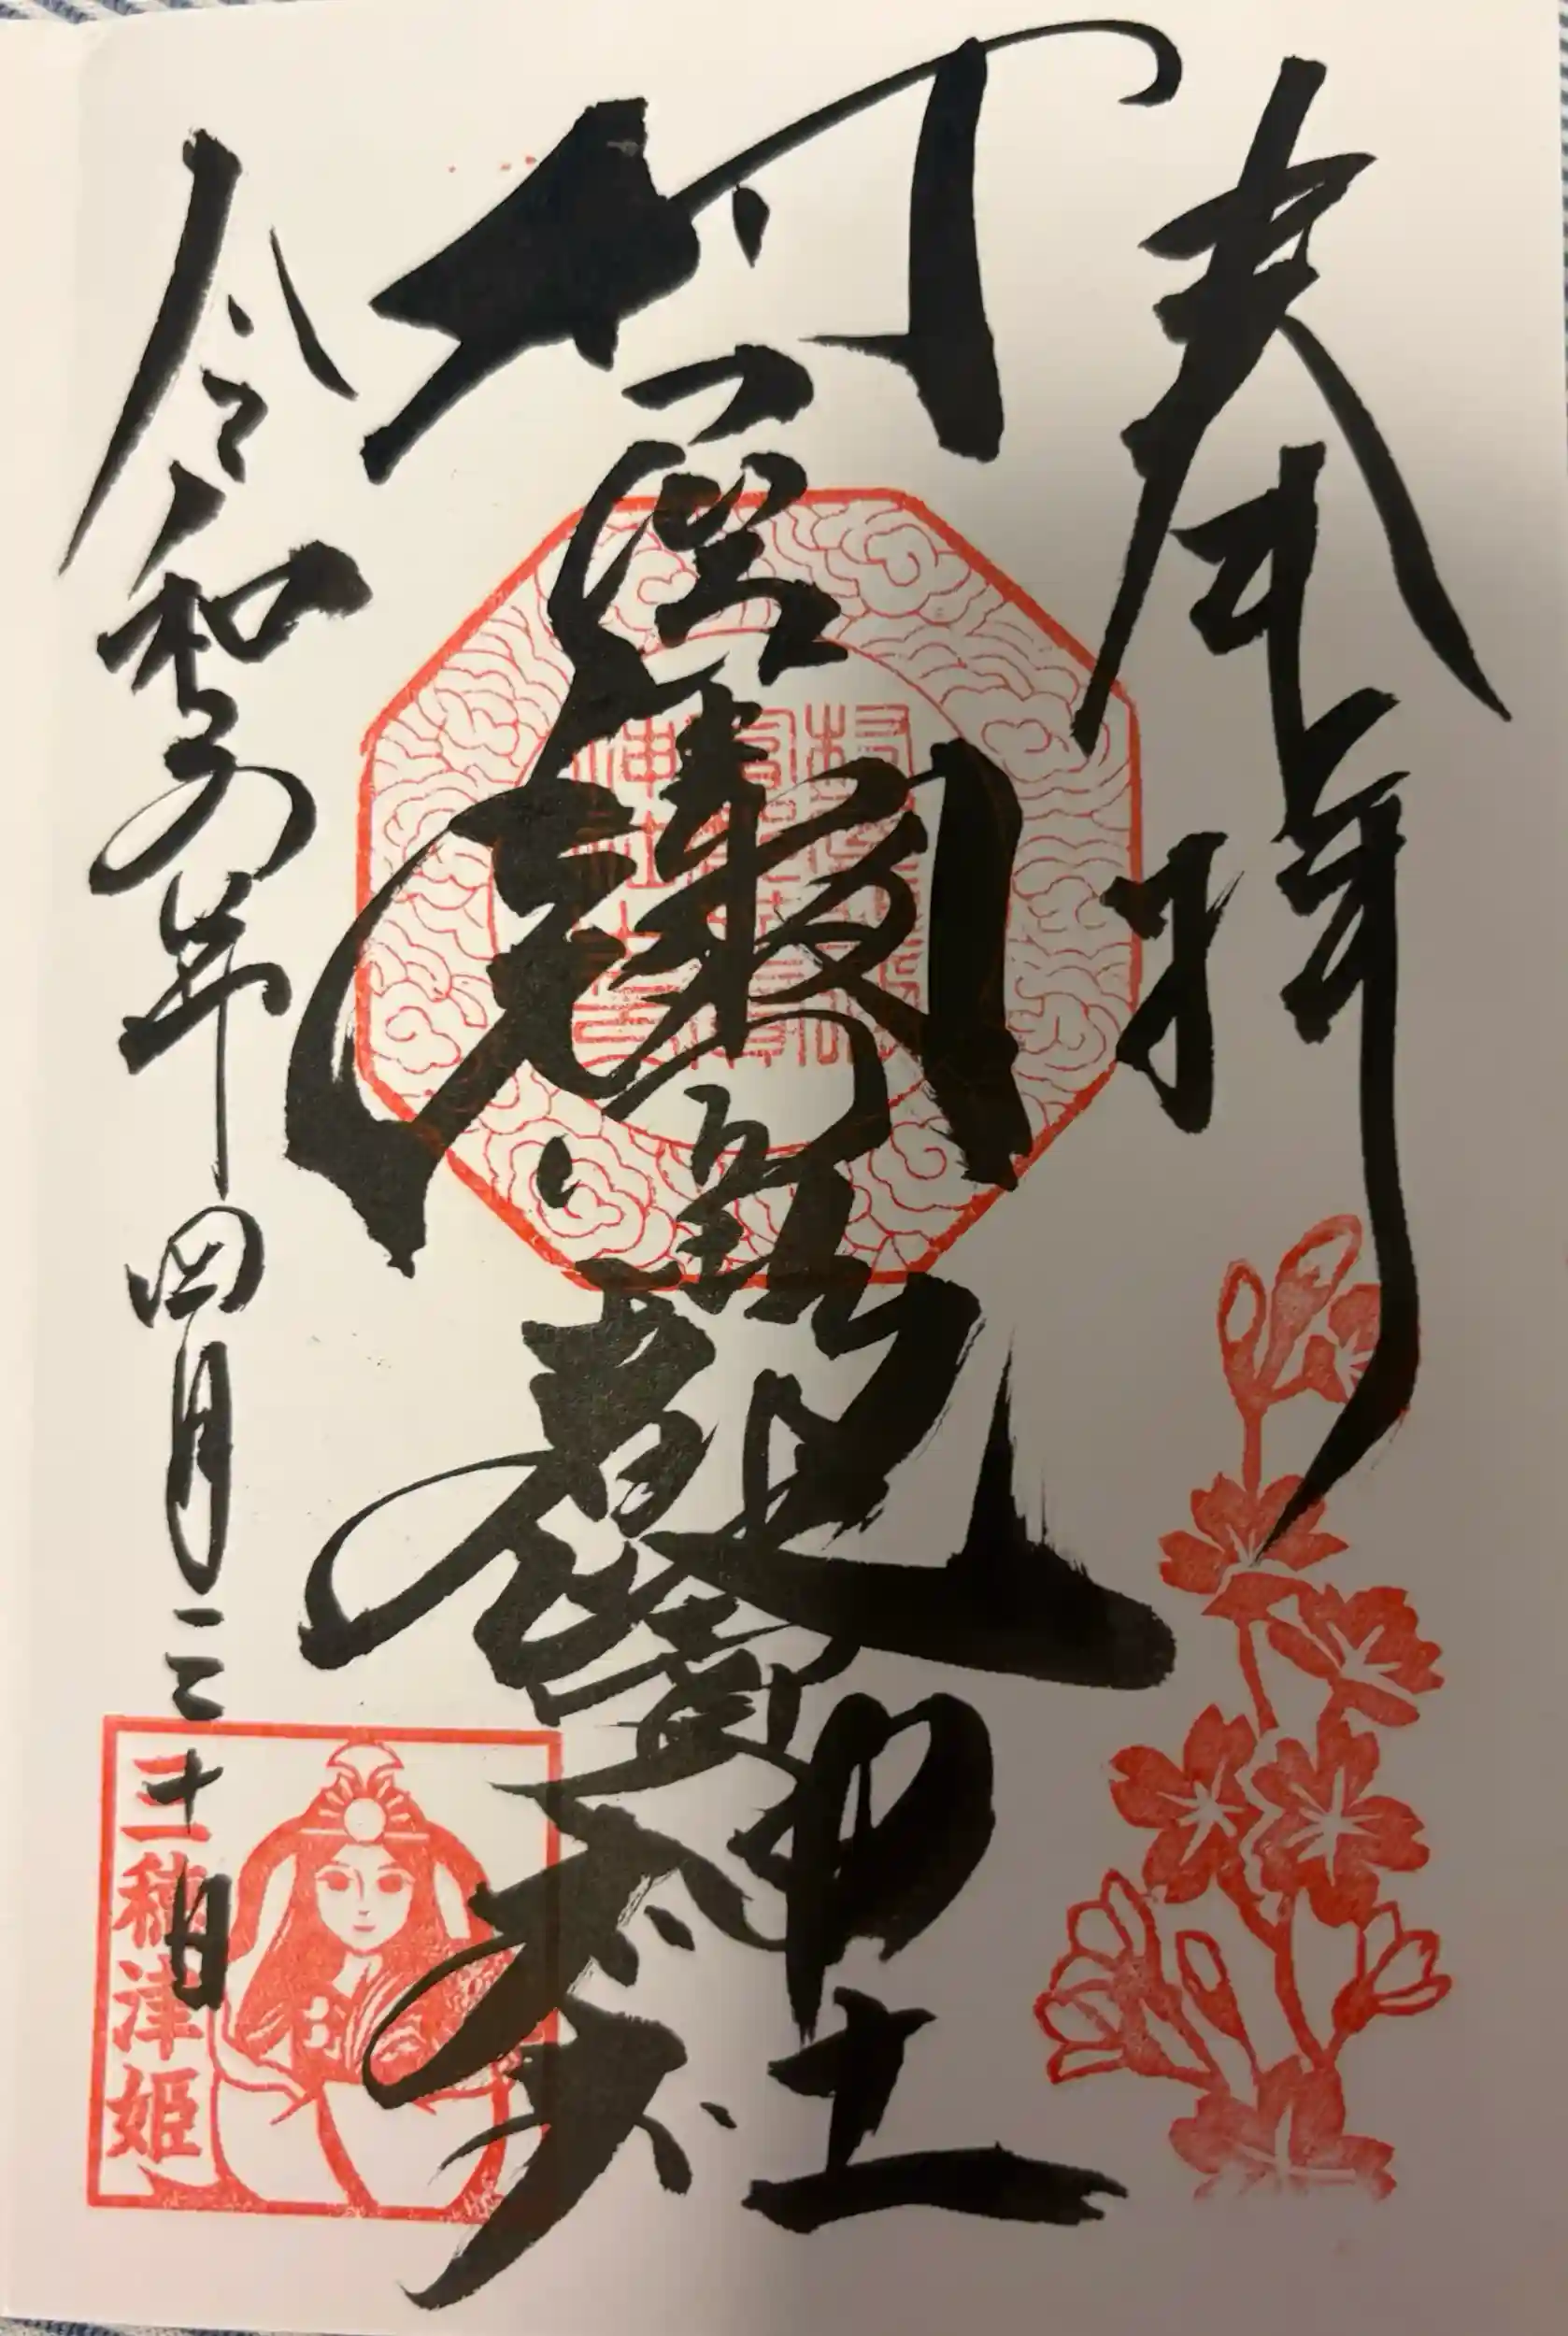 奉拝
村屋坐彌冨都比賣神社
令和五年四月三十日
三穂津姫